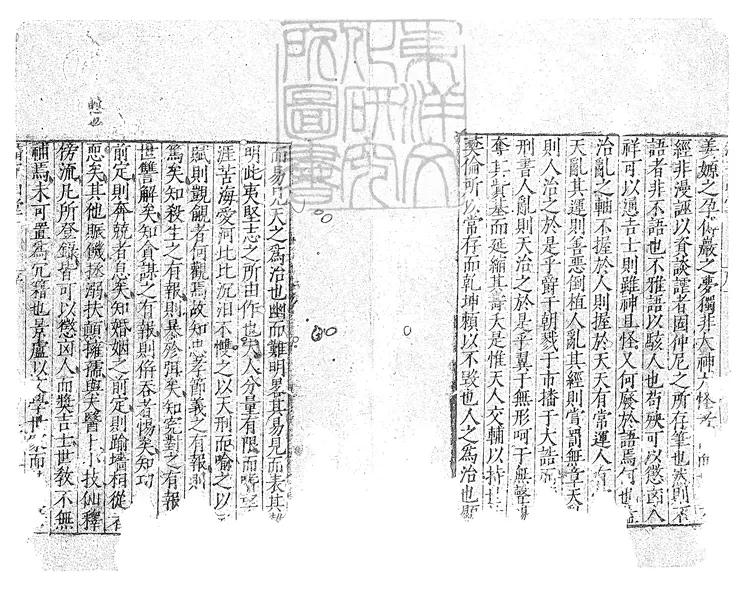 姜嫄之孕傅巖之夢獨非大神大怪者
經非漫誣以資談謔者固仲尼之所存筆也然則不
語者非不語也不雅語以駭人也苟殃可以懲凶人
祥可以週吉士則雖神且怪又何廢於語焉何也
治亂之軸不握於人則握於天天有常運人有
天亂其運則善惡倒植人亂其經則賞罰無章天
則人治之於是乎爵于朝戮于市播于大誥
刑書人亂則天治之於是乎翼于無形呵于無聲
奪其資基而延縮其壽夭是惟天人交輔以持
彝倫所以常存而乾坤賴以不毀也人之為治也顯
而易見天之為治也幽而難明畧其易見而表其
明此夷堅志之所由作也夫人分量有限而
涯苦海愛河比比沉汨不懼之以天刑而喻之以
賦則觀覩者何觀焉故知忠孝節義之有報則
篤矣知殺生之有報則暴殄弭矣知冤對之有報
世讐解矣知貪謀之有報則併吞者惕矣知功
前定則奔競者息矣知婚姻之前定則踰墻相從
恧矣其他賑饑拯溺扶顛擁孺與夫醫卜小技仙釋
傍流凡所登錄皆可以懲凶人而奬吉士世教不無
補焉未可置為冗籍也景盧以文學
東洋文
化研究
所圖書